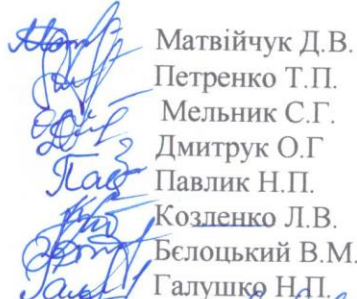 Матвійчук Д.В.
Петренко Т.П.
Мельник С.Г.
Дмитрук О.Г
Павлик Н.П.
Козленко Л.В.
Бєлоцький В.М.
Галушко Н.П.